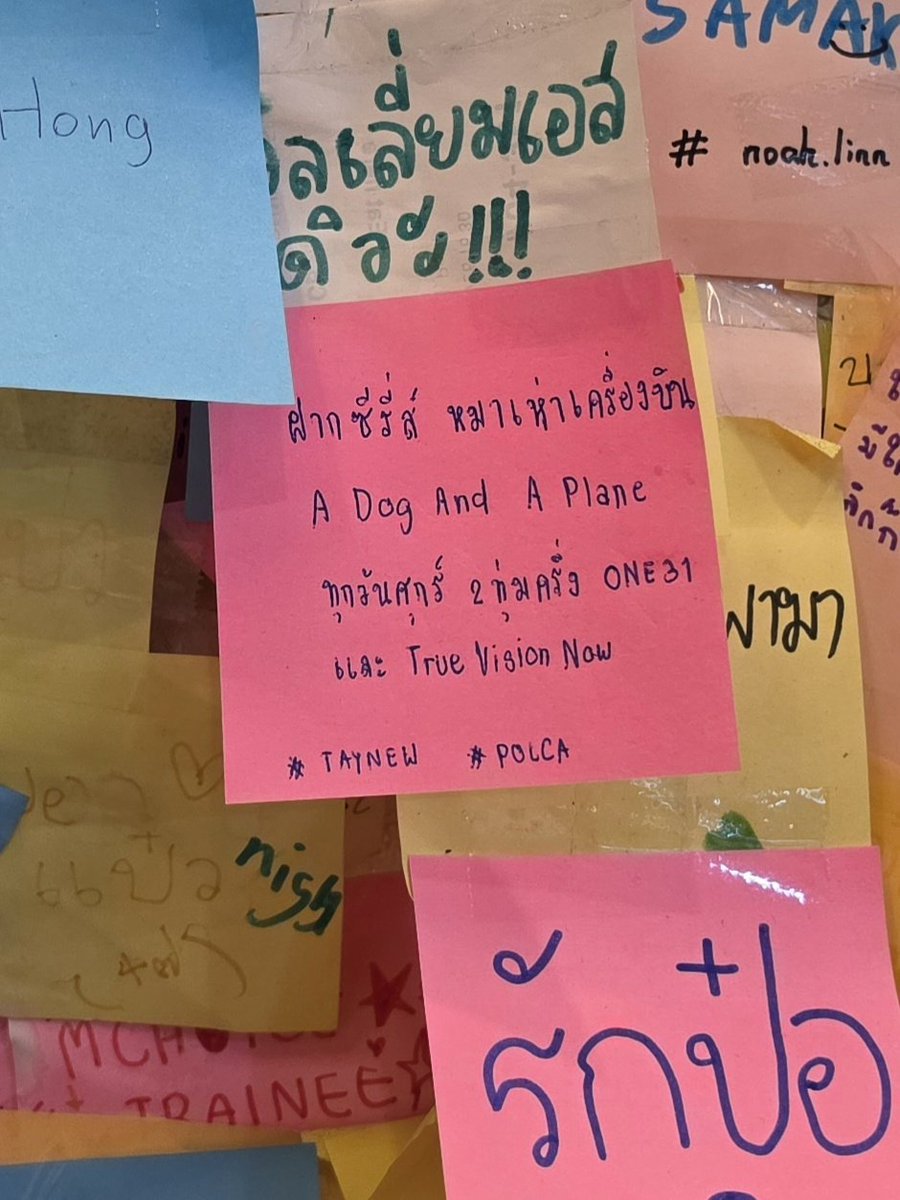 Hong
เลี่ยมเอส
ดิวะ!!!
SAMAK
# noah.linn
ฝากซีรี่ส์ หมาเห่าเครื่องบิน
A Dog And A Plane
ทุกวันศุกร์ 2 ทุ่มครึ่ง ONE31
และ True Vision Now
# TAYNEW # POLCA
แป๋ว
TRAINEE
รักป๋อ